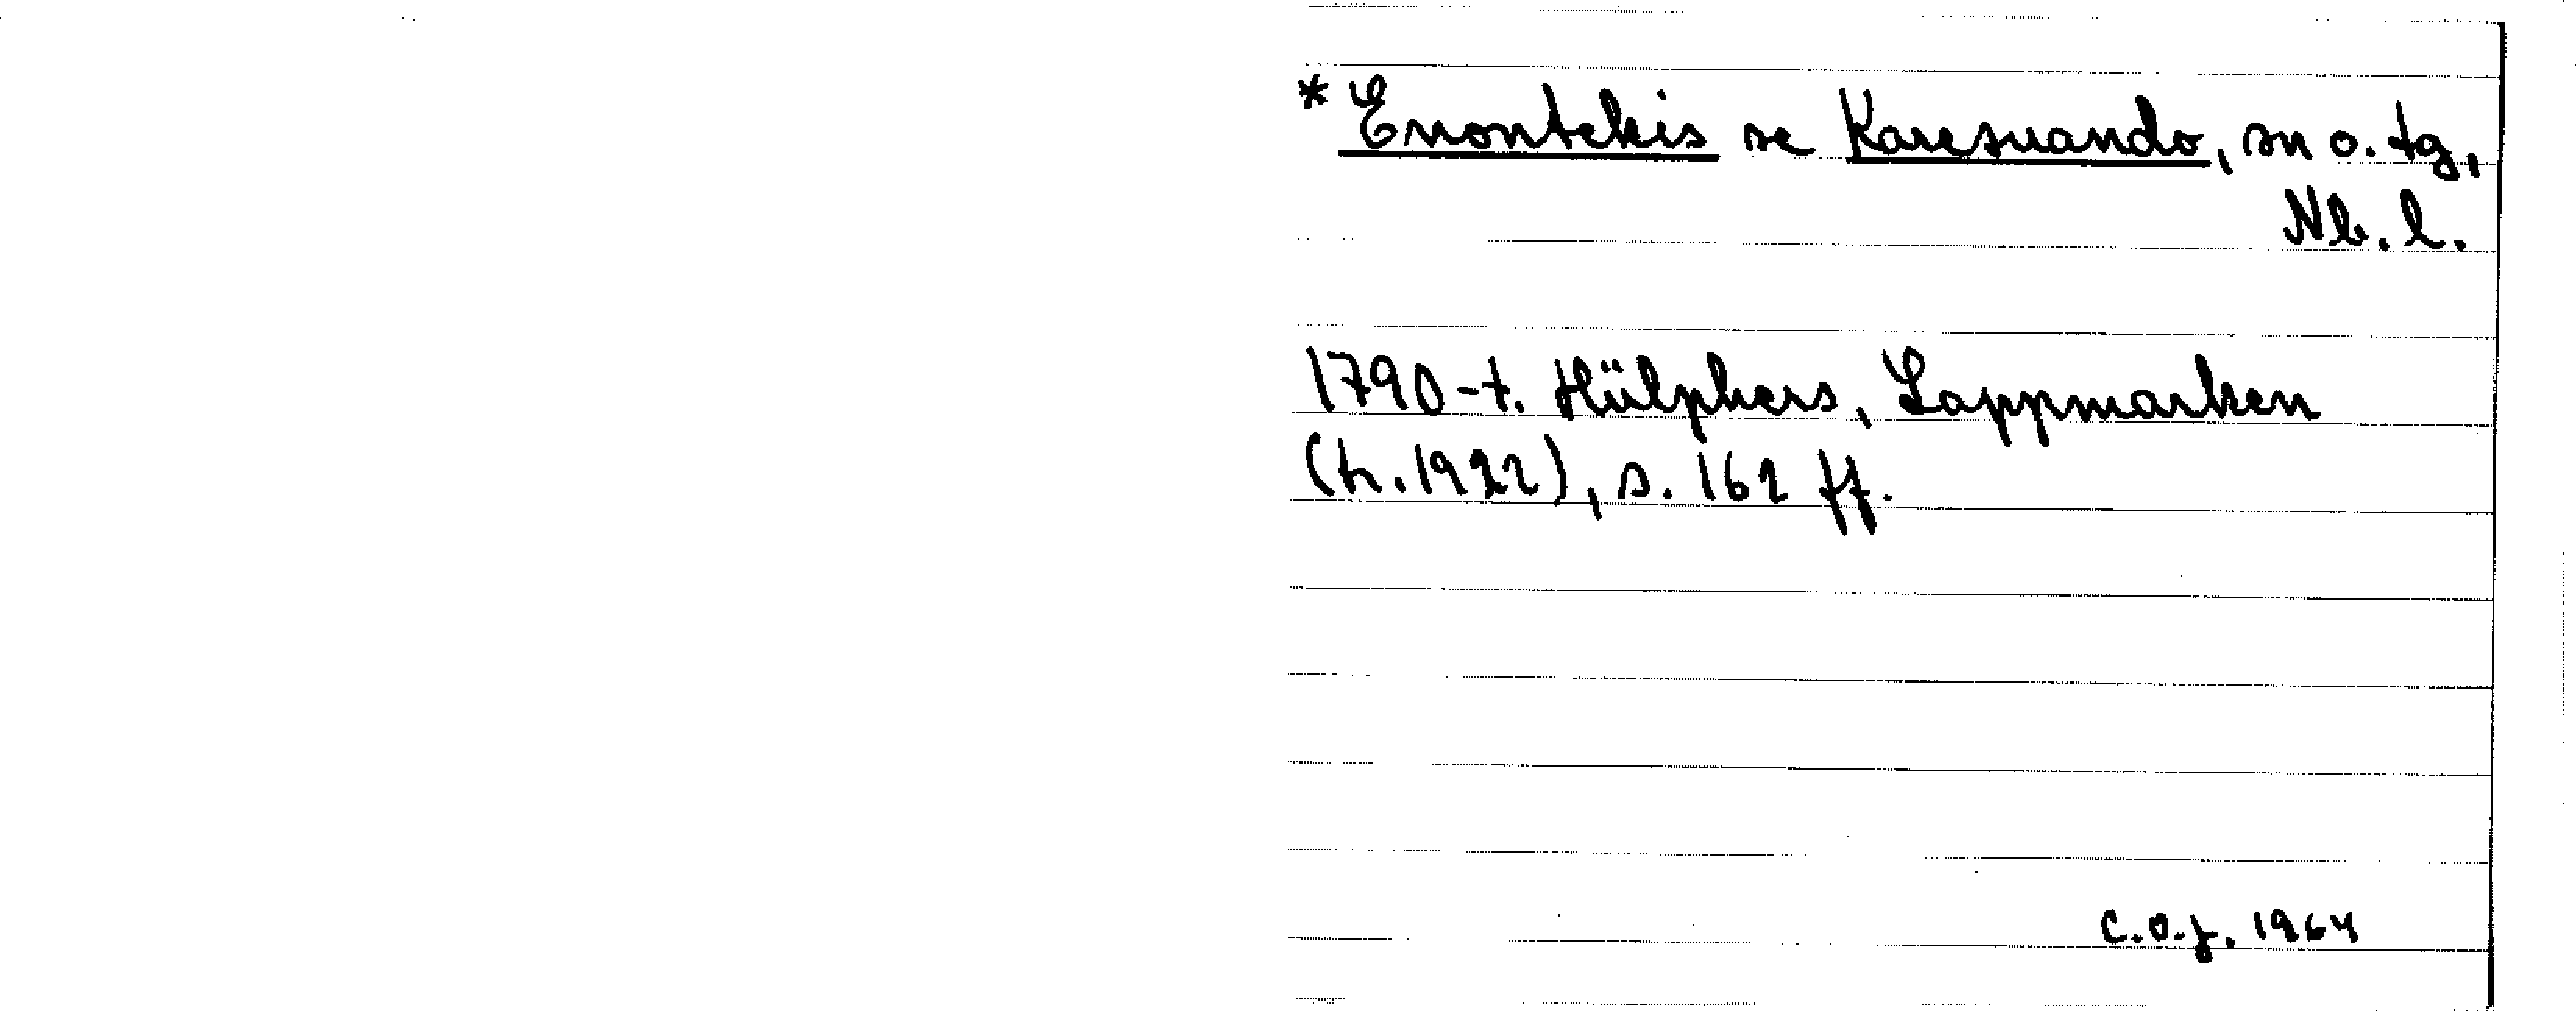 * Enontekis se Karesuando, sn o. tg,
Nb. l.
1790-t. Hülphers, Lappmarken
(tr. 1922), s. 162 ff.
C.O.J. 1964